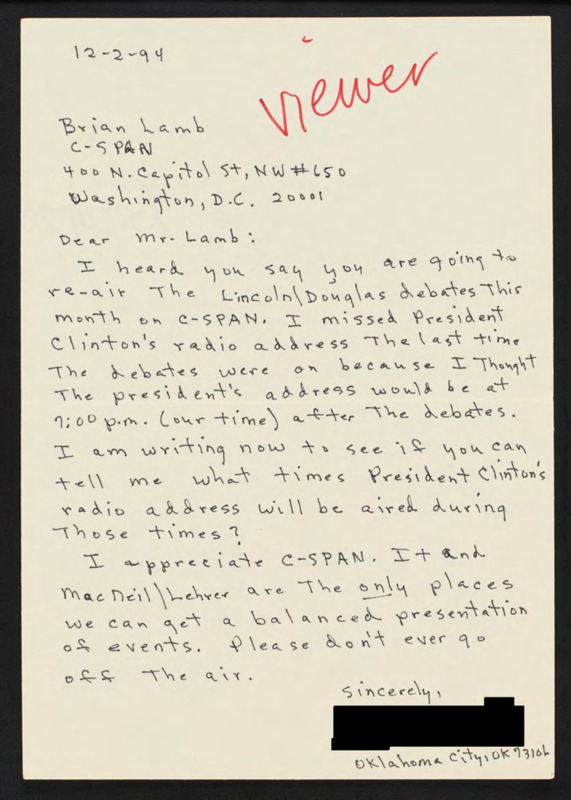 12-2-94
viewer
Brian Lamb
C-SPAN
400 N. Capitol St, NW #650
Washington, D.C. 20001
Dear Mr. Lamb:
I heard you say you are going to
re-air The Lincoln\Douglas debates This
month on C-SPAN. I missed President
Clinton's radio address The last time
The debates were on because I Thought
The president's address would be at
7:00 p.m. (our time) after The debates.
I am writing now to see if you can
tell me what times President Clinton's
radio address will be aired during
Those times?
I appreciate C-SPAN. It and
MacNeil\Lehrer are The only places
we can get a balanced presentation
of events. Please don't ever go
off The air.
Sincerely,
Oklahoma City, OK 73106